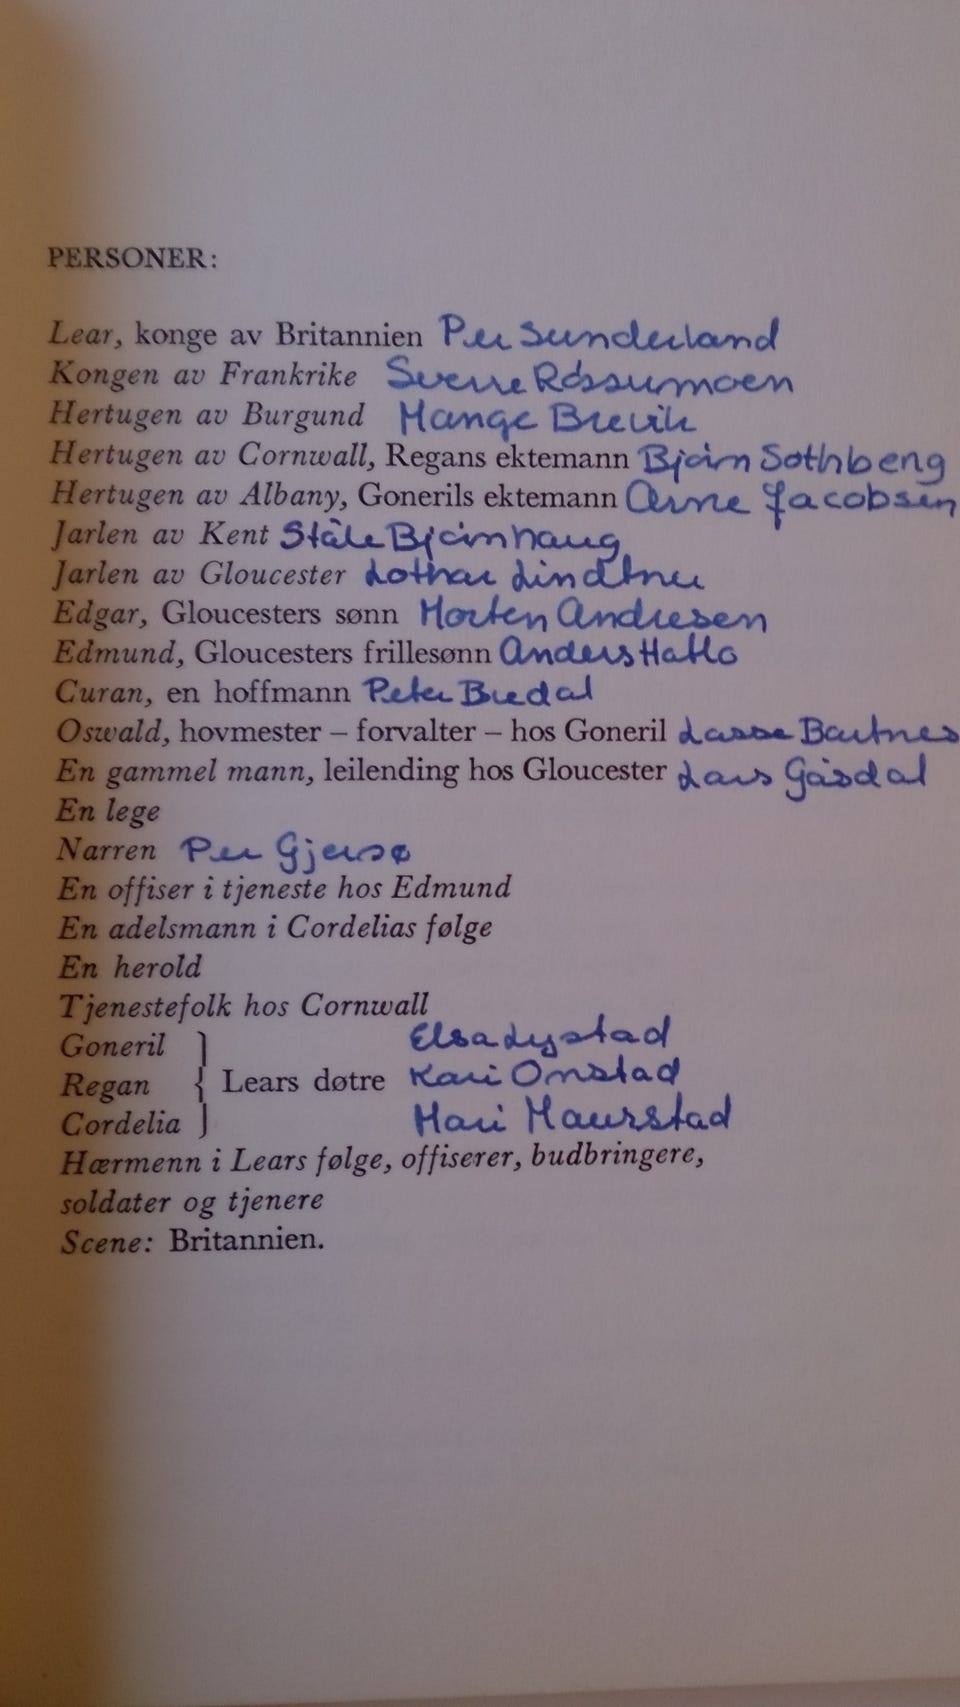 PERSONER:
Lear, konge av Britannien Per Sunderland
Kongen av Frankrike Sverre Røssumoen
Hertugen av Burgund Mange Brevik
Hertugen av Cornwall, Regans ektemann Bjørn Sothberg
Hertugen av Albany, Gonerils ektemann Arne Jacobsen
Jarlen av Kent Ståle Bjørnhaug
Jarlen av Gloucester Lothar Lindtner
Edgar, Gloucesters sønn Morten Andresen
Edmund, Gloucesters frillesønn Anders Hatlo
Curan, en hoffmann Peter Bredal
Oswald, hovmester – forvalter – hos Goneril Lasse Bartnes
En gammel mann, leilending hos Gloucester Lars Gåsdal
En lege
Narren Per Gjersø
En offiser i tjeneste hos Edmund
En adelsmann i Cordelias følge
En herold
Tjenestefolk hos Cornwall
Goneril } Elsa Lystad
Regan { Lears døtre Kari Onstad
Cordelia } Mari Maurstad
Hærmenn i Lears følge, offiserer, budbringere,
soldater og tjenere
Scene: Britannien.